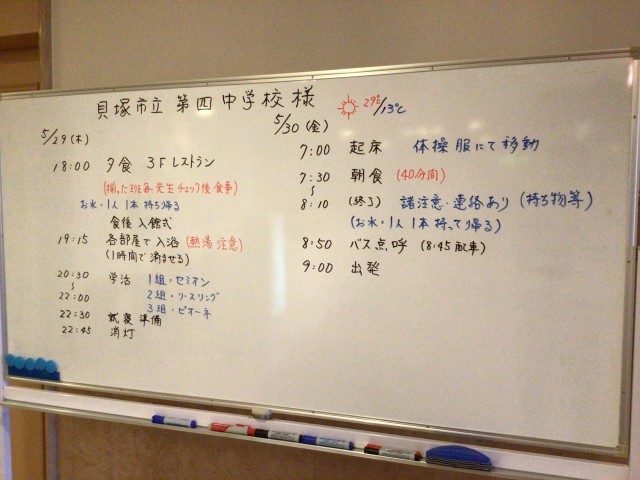 貝塚市立 第四中学校様
29℃/13℃
5/29(木)
18:00 夕食 3Fレストラン
(揃った班毎 先生チェック後 食事)
お水・1人1本持ち帰る
食後 入館式
19:15 各部屋で入浴 (熱湯注意)
(1時間で済ませる)
20:30 学活 1組・セミオン
〜 2組・リースリング
22:00 3組・ピオーネ
22:30 就寝準備
22:45 消灯
5/30(金)
7:00 起床 体操服にて移動
7:30 朝食 (40分間)
〜
8:10 (終了) 諸注意・連絡あり (持ち物等)
(お水・1人1本持って帰る)
8:50 バス点呼 (8:45配車)
9:00 出発